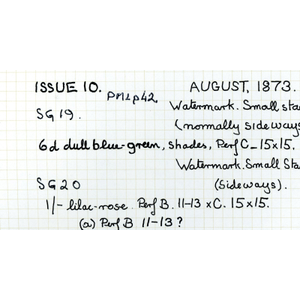 ISSUE 10. PMLp42 AUGUST, 1873.
SG 19. Watermark. Small sta
(normally sideways
6d dull blue-green, shades, Perf C_15x15.
Watermark. Small Sta
SG 20 (Sideways).
1/- lilac-rose Perf B. 11-13 x C. 15x15.
(a) Perf B 11-13?